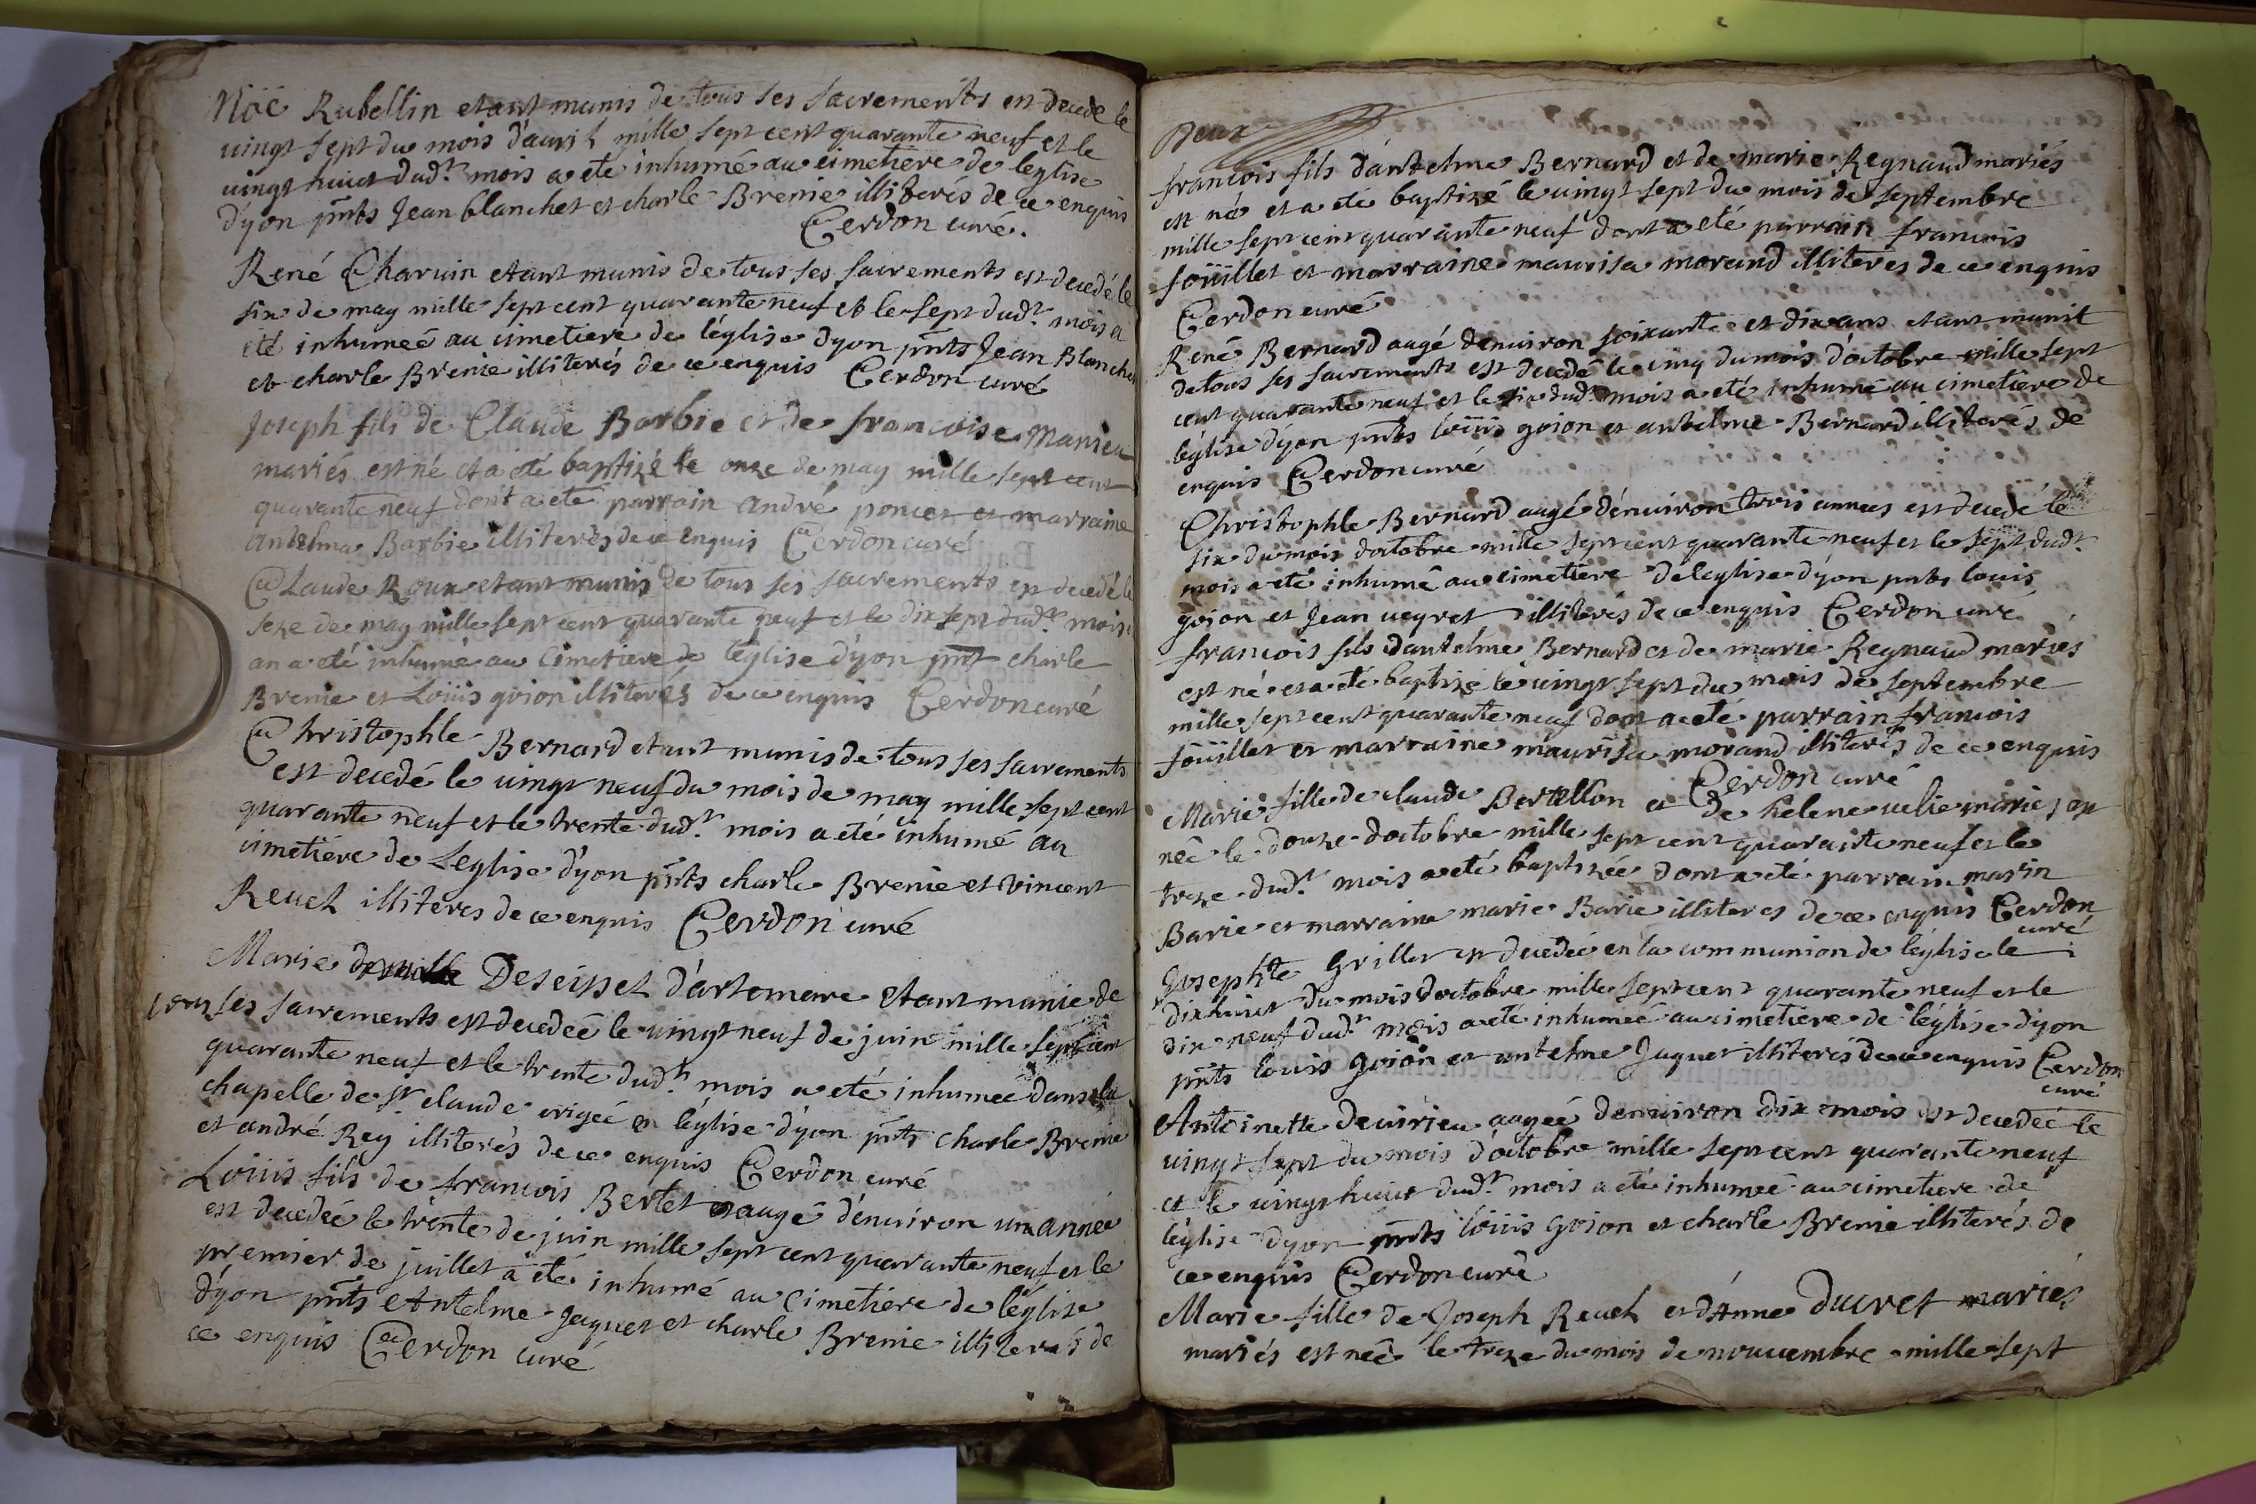 Noë Rubellin etant munis de tous ses sacrements est decede le
vingt sept du mois d'avril mille sept cent quarante neuf et le
vingt huict dudt mois a eté inhumé au cimetiere de leglise
d'yon pnts Jean blanchet et charle Brenie illiterés de ce enquis
Cerdon curé.
René Charvin etant munis de tous ses sacrements est decedé le
six de may mille sept cent quarante neuf et le sept dudt mois a
eté inhumeé au cimetiere de léglise dyon pnts Jean Blanchet
et charle Brenie illiterés de ce enquis Cerdon curé
Joseph fils de Claude Barbie et de francoise Manieu
mariés est né et a eté baptizé le onze de may mille sept cent
quarante neuf dont a eté parrain andré poncet et marraine
antelma Barbie illiterés de ce enquis Cerdon curé
Claude Roux etant munis de tous ses sacrements est decedé le
seze de may mille sept cent quarante neuf et le dix sept dudt mois
an a eté inhumé au cimetiere de léglise d'yon pnt charle
Brenie et Loüis goion illiterés de ce enquis Cerdon curé
Christophle Bernard etant munis de tous ses sacrements
est decedé le vingt neuf du mois de may mille sept cent
quarante neuf et le trente dudt mois a eté inhumé au
cimetière de Leglise d'yon pnts charle Brenie et vincent
Revel illiteres de ce enquis Cerdon curé
Marie Deseissel d'artemare etant munie de
tous ses sacrements est decedeé le vingt neuf de juin mille sept cent
quarante neuf et le trente dudt mois a eté inhumee dans la
chapelle de st claude erigeé en léglise d'yon pnts charle Brenie
et andré Rey illiterés de ce enquis Cerdon curé
Loüis fils de francois Bertet augé d'environ un anneé
est decedeé le trente de juin mille sept cent quarante neuf et le
premier de juillet a eté inhumé au cimetiere de léglise
d'yon pnts Antelme Jaquet et charle Brenie illiterés de
ce enquis Cerdon curé
Deux
francois fils d'antelme Bernard et de marie Regnaud mariés
est né et a eté baptizé le vingt sept du mois de septembre
mille sept cent quarante neuf dont a eté parrain francois
foüillet et marraine maurisa morand illiteres de ce enquis
Cerdon curé
René Bernard augé denviron soixante et dix ans etant munit
de tous ses sacrements est decedé le cinq du mois d'octobre mille sept
cent quarante neuf et le six dudt mois a eté inhumé au cimetiere de
léglise d'yon pnts loüis goion et antelme Bernard illiterés de
enquis Cerdon curé
Christophle Bernard augé d'environ trois annees est decedé le
six du mois doctobre mille sept cent quarante neuf et le sept dudt
mois a eté inhumé au cimetiere de leglise d'yon pnts louis
goion et Jean veyret illiterés de ce enquis Cerdon curé
francois fils dantelme Bernard et de marie Regnaud mariés
est né et a eté baptizé le vingt sept du mois de septembre
mille sept cent quarante neuf dont a eté parrain francois
foüillet et marraine maurisa morand illiterés de ce enquis
Cerdon curé
Marie fille de claude Bertellon et de helene velie mariés est
neé le douze doctobre mille sept cent quarante neuf et le
treze dudt mois a eté baptizée dont a eté parrain marin
Barie et marraine marie Barie illiteres de ce enquis Cerdon
curé
Josephte Grillet est decedeé en la communion de léglise le
dixhuict du mois doctobre mille sept cent quarante neuf et le
dix neuf dudt mois a eté inhumeé au cimetiere de léglise d'yon
pnts louis goion et antelme Jaquet illiterés de ce enquis Cerdon
curé
Antoinette devirieu augeé denviron dix mois est decedeé le
vingt sept du mois d'octobre mille sept cent quarante neuf
et le vingt huict dudt mois a eté inhumeé au cimetiere de
léglise dyon pnts loüis Goion et charle Brenie illiterés de
ce enquis Cerdon curé
Marie fille de Joseph Revel et d'Anne Ducret mariés
mariés est neé le treze du mois de nouvembre mille sept